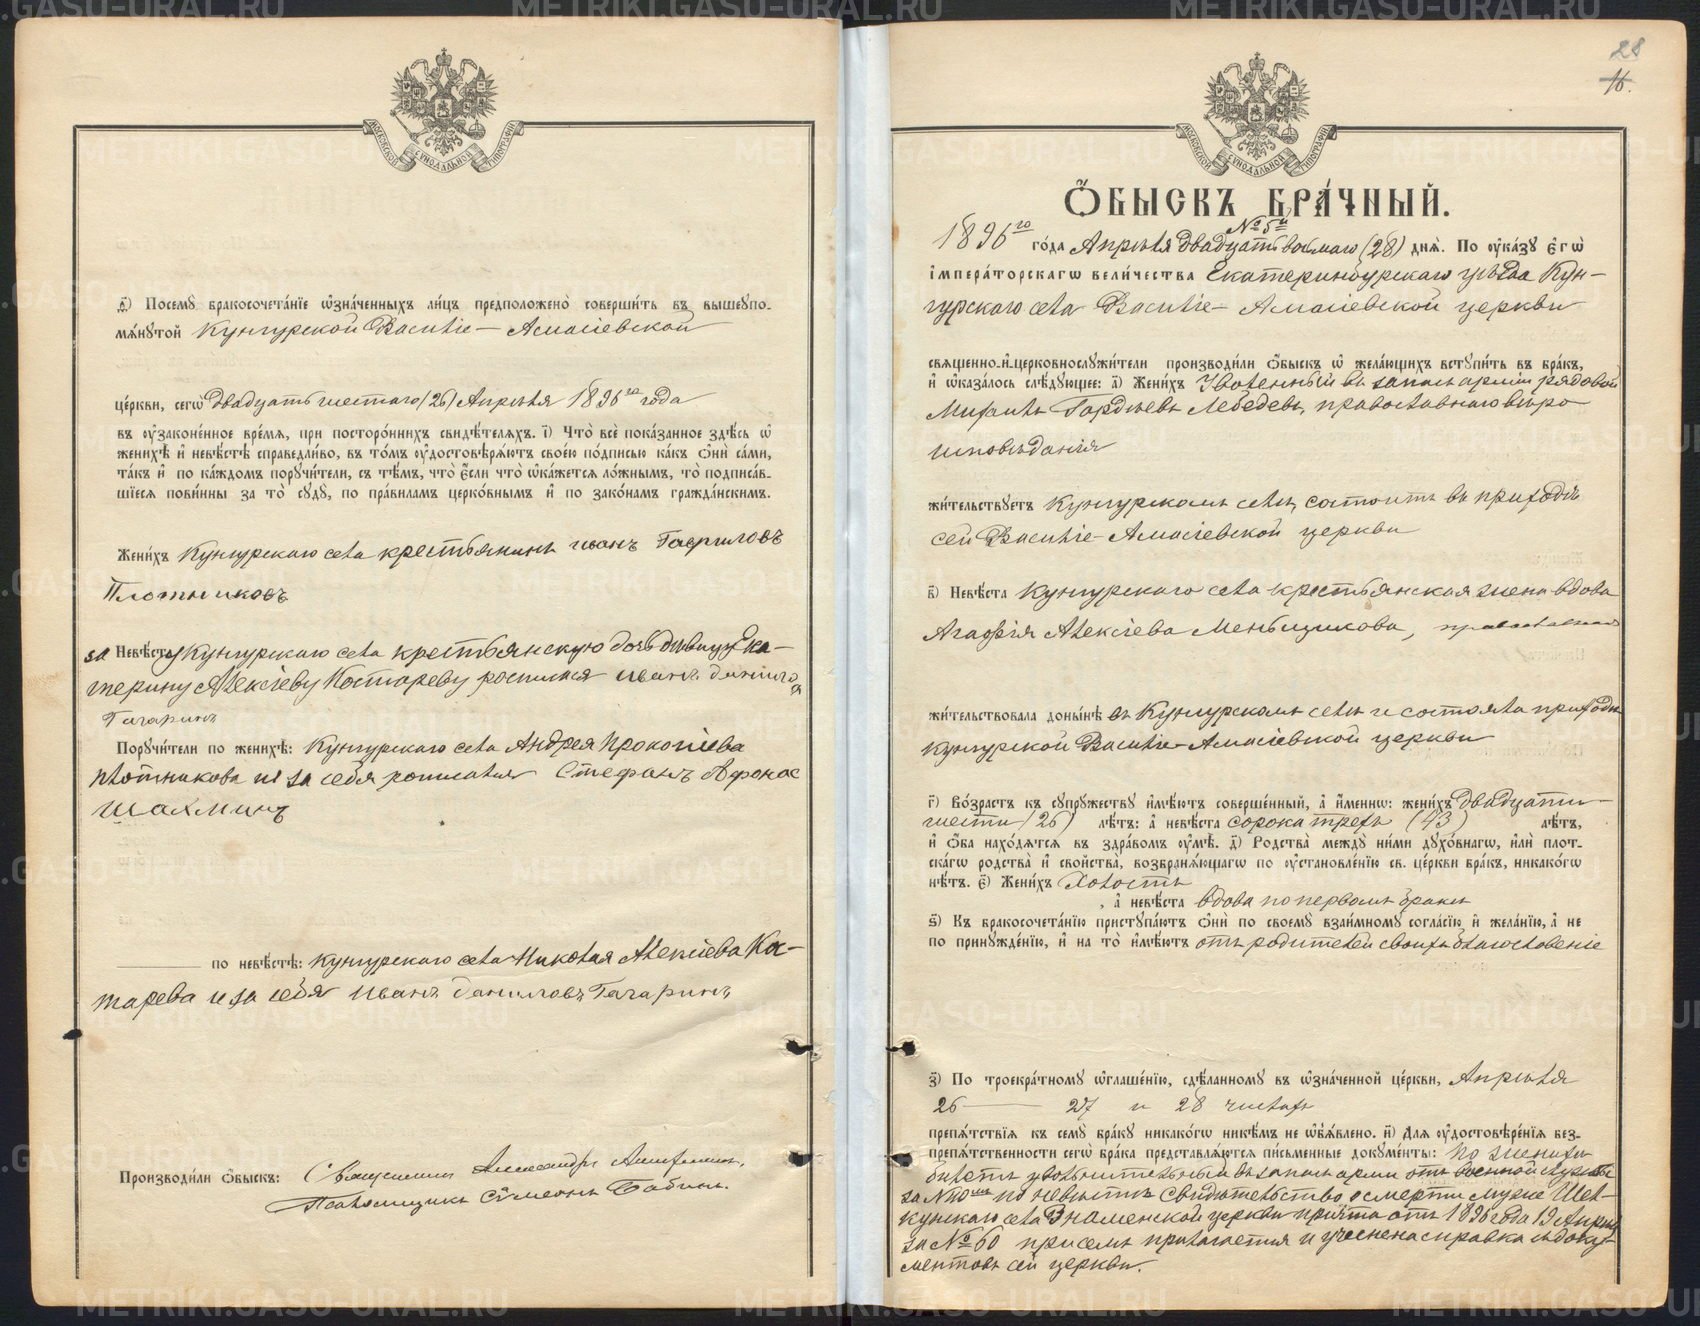 МОСКОВСКОЙ СѴНОДАЛЬНОЙ ТИПОГРАФІИ
ѳ҃) Посемꙋ бракосочета́нїе ѡ҆зна́ченныхъ ли́цъ предположено̀ соверши́ть въ вышеꙋпо-
мѧ́нꙋтой Кунгурской Василіе-Амасіевской
це́ркви, сегѡ̀ двадцать шестаго (26) Апрѣля 1896го года
въ ᲂу҆зако́ненное вре́мѧ, при посторо́ннихъ свидѣ́телѧхъ. і҃) Что̀ всѐ пока́занное здѣ́сь ѡ҆
женихѣ̀ и҆ невѣ́стѣ справедли́во, въ то́мъ ᲂу҆достовѣрѧ́ютъ свое́ю по́дписью ка́къ ѻ҆нѝ са́ми,
та́къ и҆ по ка́ждомъ порꙋчи́тели, съ тѣ́мъ, что̀ є҆́сли что̀ ѡ҆ка́жетсѧ ло́жнымъ, то̀ подписа́в-
шїесѧ пови́нны за то̀ сꙋдꙋ̀, по пра́виламъ церко́внымъ и҆ по зако́намъ гражда́нскимъ.
Жени́хъ Кунгурскаго села крестьянинъ иванъ Гаврилов
Плотников
за Невѣ́стꙋ Кунгурскаго села крестьянскую дочь дѣвицу Ека-
терину Алексіеву Костареву росписался иванъ данило
Гагаринъ
Порꙋчи́тели по женихѣ̀: Кунгурскаго села Андрея Прокопіева
плотникова и за себя росписался Стефанъ Афонас
Шахминъ
по невѣ́стѣ: Кунгурскаго села Николая Алексіева Ка-
тарева и за себя иванъ даниловъ Гагаринъ
Производи́ли ѻ҆́быскъ: Священникъ Александръ
Псаломщикъ Сѵмеонъ Бабинъ.
28
16.
МОСКОВСКОЙ СѴНОДАЛЬНОЙ ТИПОГРАФІИ
Ѻ҆́БЫСКЪ БРА́ЧНЫЙ.
№ 5й
1896го го́да Апрѣля двадцать восьмаго (28) днѧ̀. По ᲂу҆ка́зꙋ є҆гѡ̀
і҆мпера́торскагѡ вели́чества Екатеринбурскаго уѣзда Кун-
гурскаго села Василіе-Амасіевской церкви
свѧще́нно-и҆-церковнослꙋжи́тели производи́ли ѻ҆́быскъ ѡ҆ жела́ющихъ встꙋпи́ть въ бра́къ,
и҆ ѡ҆каза́лось слѣ́дꙋющее: а҃) Жени́хъ Уволенный въ запасъ арміи рядовой
Михаилъ Гордѣевъ Лебедевъ, православнаго вѣро
исповѣданія
жи́тельствꙋетъ Кунгурскомъ селѣ, состоитъ въ приходѣ
сей Василіе-Амасіевской церкви
в҃) Невѣ́ста Кунгурскаго села крестьянская жена вдова
Агафія Алексіева Меньщикова, православная
жи́тельствовала доны́нѣ въ Кунгурскомъ селѣ и состояла приходѣ
Кунгурской Василіе-Амасіевской церкви
г҃) Во́зрастъ къ сꙋпрꙋ́жествꙋ и҆мѣ́ютъ соверше́нный, а҆ и҆́меннѡ: жени́хъ двадцати-
шести (26) лѣ́тъ: а҆ невѣ́ста сорока трехъ (43) лѣ́тъ,
и҆ ѻ҆́ба нахо́дѧтсѧ въ здра́вомъ ᲂу҆мѣ̀. д҃) Родства̀ междꙋ̀ ни́ми дꙋхо́внагѡ, и҆лѝ плот-
ска́гѡ родства̀ и҆ сво́йства, возбранѧ́ющагѡ по ᲂу҆становле́нїю св. це́ркви бра́къ, никако́гѡ
нѣ́тъ. є҃) Жени́хъ Холостъ
, а҆ невѣ́ста вдова по первомъ бракѣ
ѕ҃) Къ бракосочета́нїю пристꙋпа́ютъ ѻ҆нѝ по своемꙋ̀ взаи́мномꙋ согла́сїю, и҆ жела́нїю, а҆ не
по принꙋжде́нїю, и҆ на то̀ и҆мѣ́ютъ отъ родителей своихъ благословеніе
з҃) По троекра́тномꙋ ѡ҆глаше́нїю, сдѣ́ланномꙋ въ ѡ҆зна́ченной це́ркви, Апрѣля
26 — 27 и 28 числахъ
препѧ́тствїѧ къ семꙋ̀ бра́кꙋ никако́гѡ никѣ́мъ не ѡ҆б̾ѧ́влено. и҃) Для ᲂу҆достовѣре́нїѧ без-
препѧ́тственности сегѡ̀ бра́ка представлѧ́ютсѧ пи́сьменные докꙋме́нты: по женихѣ
билетъ увольнительный въ запасъ арміи отъ военной службы
за № по невѣстѣ Свидѣтельство о смерти мужа Щел-
кунскаго села Знаменской церкви причта отъ 1896 года 19 Апрѣля
за № 60 при семъ прилагается и учинена справка съ доку-
ментовъ сей церкви.
METRIKI.GASO-URAL.RU